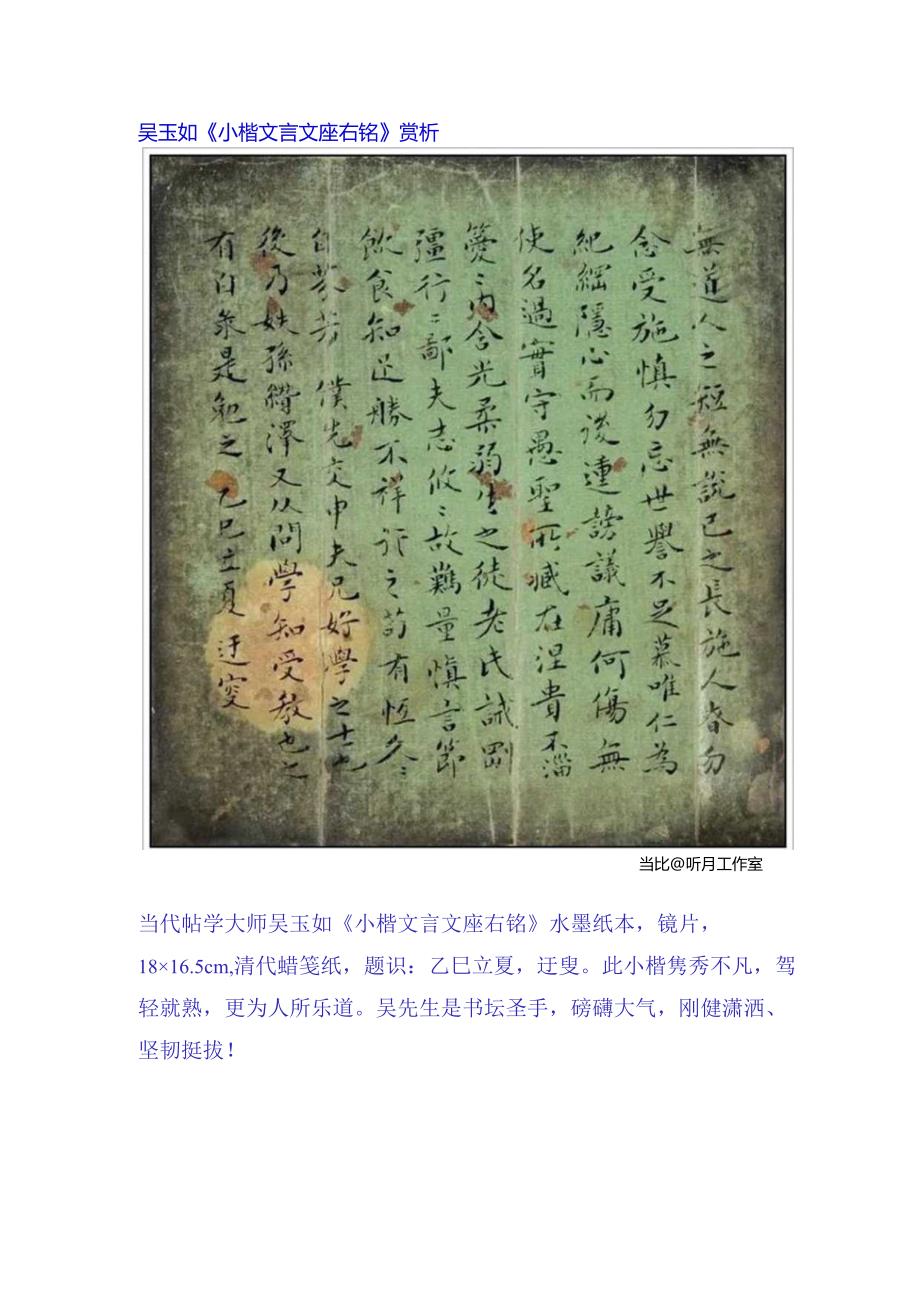 吴玉如《小楷文言文座右铭》赏析
無道人之短無說己之長施人眘勿
念受施慎勿忘世譽不足慕唯仁為
紀綱隱心而後謗議庸何傷無
使名過實守愚聖所臧在涅貴不淄
〻内含光柔弱生之徒老氏誡剛
彊行〻鄙夫志攸〻故難量慎言節
飲食知足勝不祥行之苟有恆久〻
自芬芳 僕先交申夫兄好學之士也
後乃孫澤又从問學知受教也之
有白是勉之 乙巳立夏 迂叟
当比@听月工作室
当代帖学大师吴玉如《小楷文言文座右铭》水墨纸本，镜片，
18×16.5cm,清代蜡笺纸，题识：乙巳立夏，迂叟。此小楷隽秀不凡，驾
轻就熟，更为人所乐道。吴先生是书坛圣手，磅礴大气，刚健潇洒、
坚韧挺拔！